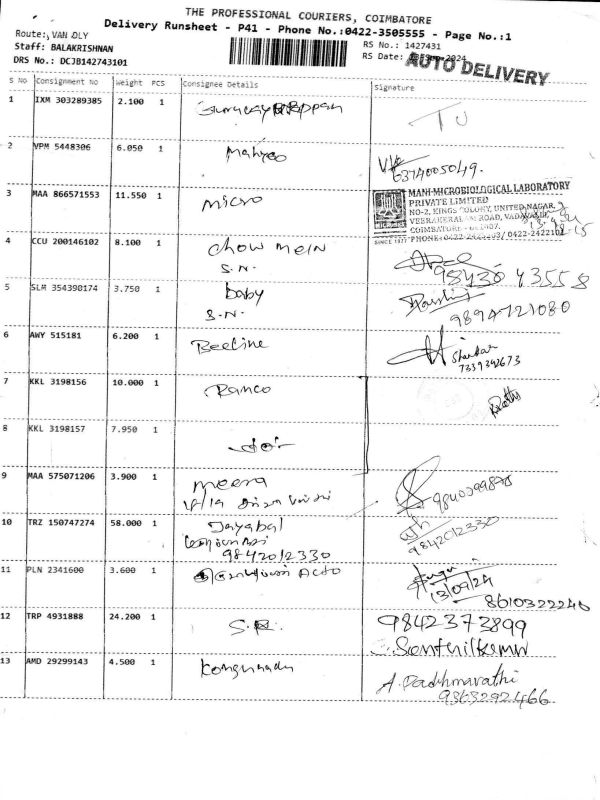 THE PROFESSIONAL COURIERS, COIMBATORE
Delivery Runsheet - P41 - Phone No.:0422-3505555 - Page No.:1
Route:,VAN DLY
Staff: BALAKRISHNAN
DRS No.: DCJB142743101
RS No.: 1427431
RS Date: 2024
AUTO DELIVERY
S No Consignment No Weight PCS Consignee Details Signature
1 IXM 303289385 2.100 1
TJ
2 VPM 5448306 6.050 1
6374005049.
3 MAA 866571553 11.550 1 Micro
MANI-MICROBIOLOGICAL LABORATORY
PRIVATE LIMITED
NO-2, KINGS COLONY, UNITED NAGAR,
VEERAKERALAM ROAD, VADAVALLI,
COIMBATORE
SINCE 1977 PHONE: 0422
4 CCU 200146102 8.100 1 Chow mein
S.N.
98436 43558
5 SLM 354390174 3.750 1 baby
S.N.
9894721080
6 AWY 515181 6.200 1 Beeline
Shankar
7339342673
7 KKL 3198156 10.000 1 Ramco
8 KKL 3198157 7.950 1 -do-
9 MAA 575071206 3.900 1 Meera
10 TRZ 150747274 58.000 1 Jayabal
9842012330
9842012330
11 PLN 2341600 3.600 1 Acto
13/09/24
8610322246
12 TRP 4931888 24.200 1
9842373899
Senthilkumar
13 AMD 29299143 4.500 1 Kongunadu
A. Padhmavathi
9363292466